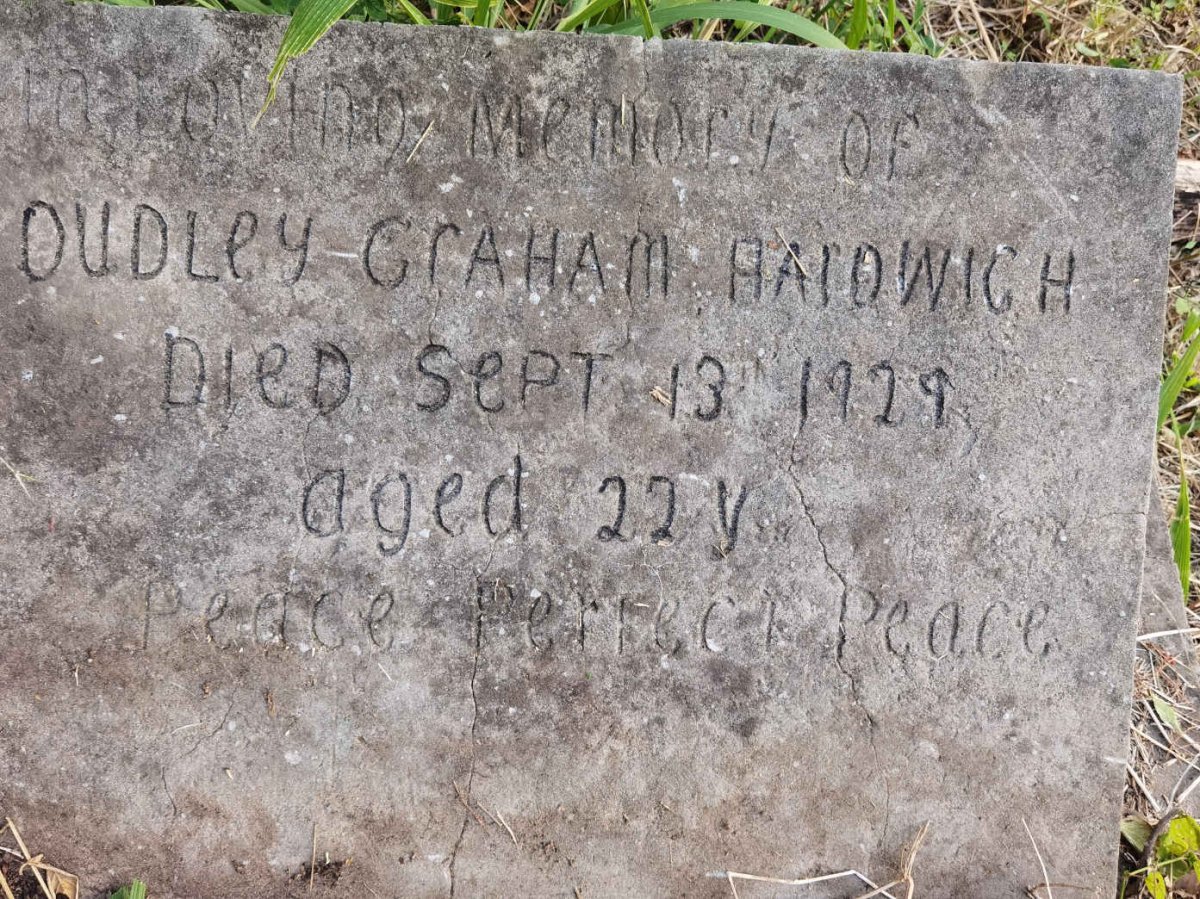 In Loving Memory of
DUDLey GrAHAm HArDWICH
DIeD SePT 13 1929
aged 22 y
Peace Perfect Peace